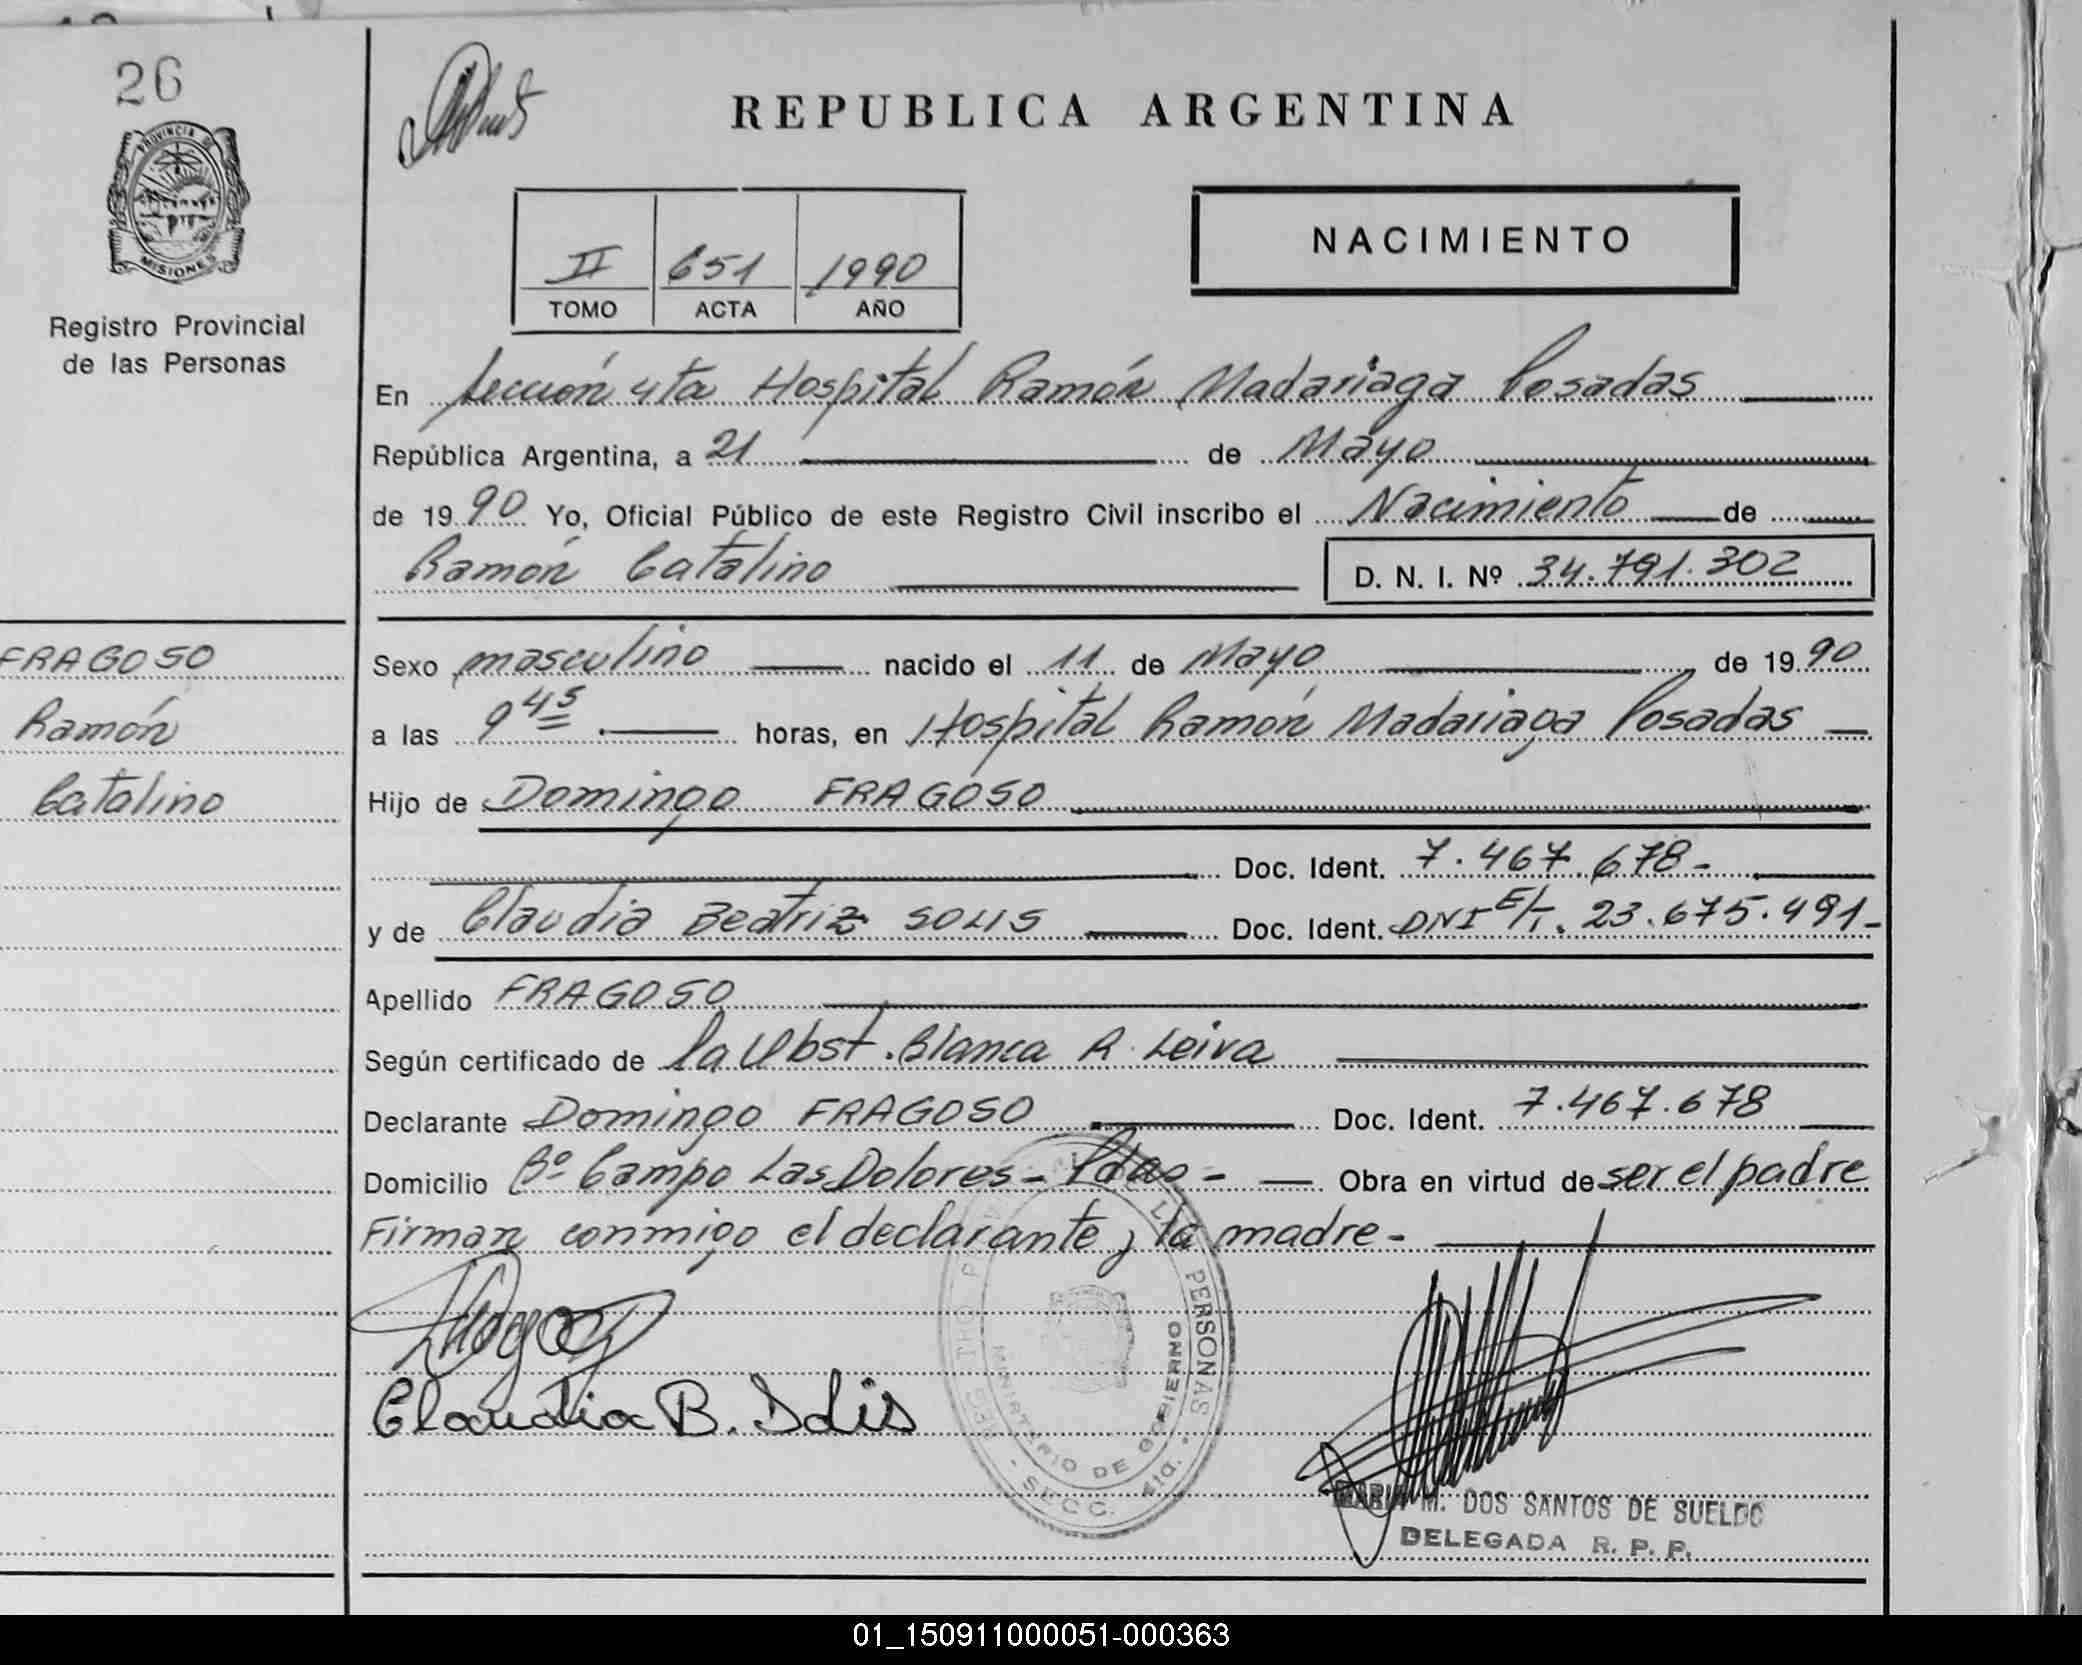 26
PROVINCIA DE
MISIONES
Registro Provincial
de las Personas
FRAGOSO
Ramón
Catalino
REPUBLICA ARGENTINA
NACIMIENTO
II 651 1990
TOMO ACTA AÑO
En Sección 4ta Hospital Ramón Madariaga Posadas
República Argentina, a 21 de Mayo
de 1990 Yo, Oficial Público de este Registro Civil inscribo el Nacimiento de
Ramón Catalino D. N. I. Nº 34.791.302
Sexo masculino nacido el 11 de Mayo de 1990
a las 9 45 horas, en Hospital Ramón Madariaga Posadas
Hijo de Domingo FRAGOSO
Doc. Ident. 7.467.678-
y de Claudia Beatriz SOLIS Doc. Ident. DNI E/T. 23.675.491-
Apellido FRAGOSO
Según certificado de la Obst. Blanca R. Leiva
Declarante Domingo FRAGOSO Doc. Ident. 7.467.678
Domicilio Bº Campo Las Dolores - Pdas - Obra en virtud de ser el padre
Firman conmigo el declarante y la madre-
Claudia B. Solis
PERSONAS
MINISTERIO DE GOBIERNO
SECC. 4ta.
MARIA M. DOS SANTOS DE SUELDO
DELEGADA R. P. P.
01_150911000051-000363